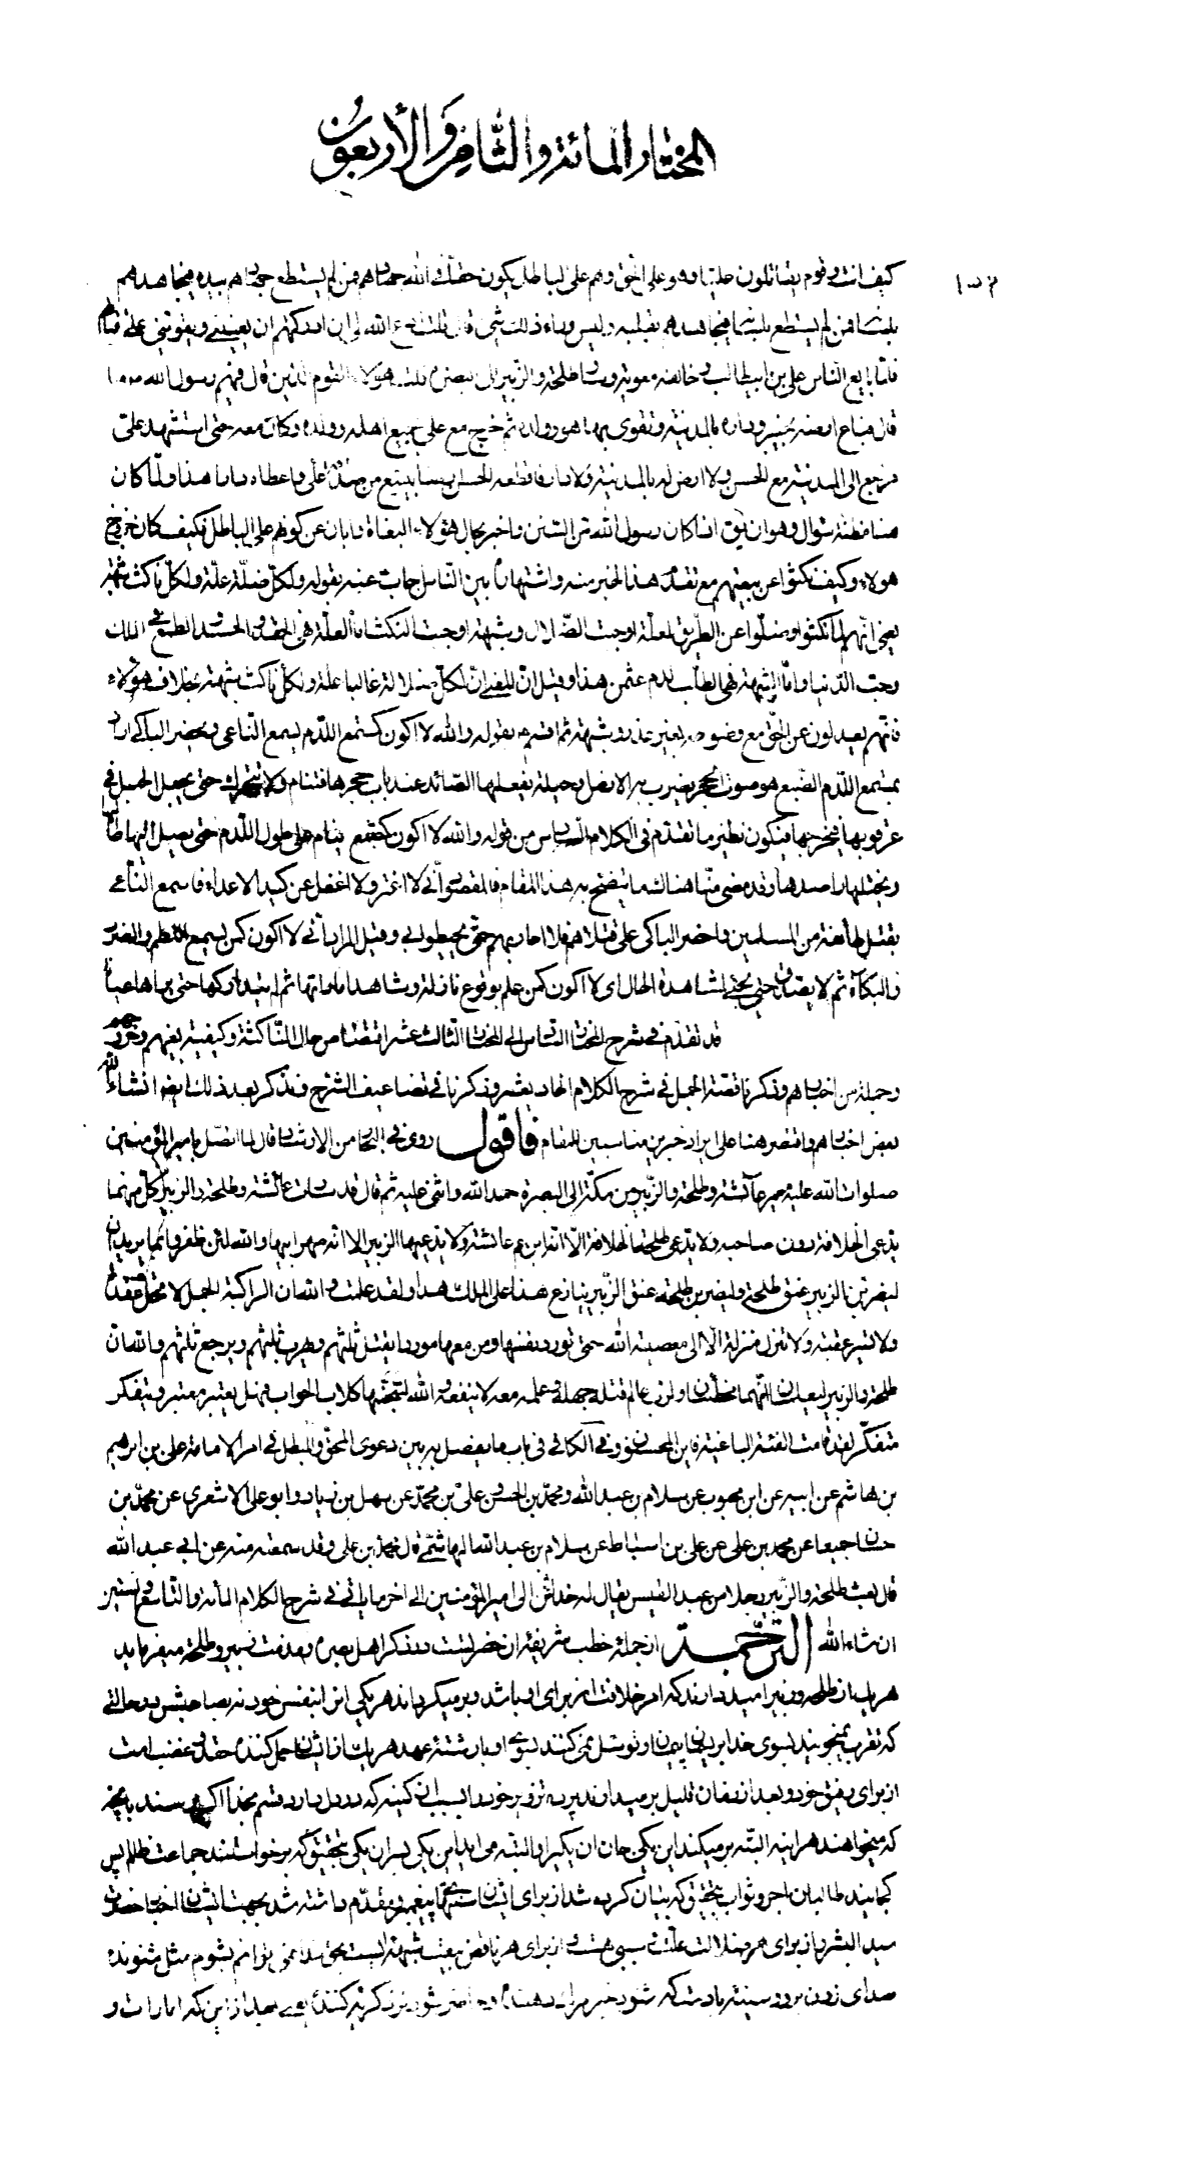 المختار المائة والثامن والأربعون
كيف انت وقوم يقاتلون عليّا وهو على الحق وهم على الباطل يكون حقّا في الله جهادهم فمن لم يستطع جهادهم بيده فيجاهدهم
بلسانه فمن لم يستطع بلسانه فيجاهدهم بقلبه وليس وراء ذلك شيء قال قلت ادع الله لي ان ادركتهم ان يعينني ويقويني على قتالهم
فلمّا بايع الناس علي بن ابيطالب وخالفه معوية وسار طلحة والزبير الى البصرة قلت هؤلاء القوم الذين قال فيهم رسول الله
قال فباع ارضه بخيبر وداره بالمدينة وتقوى بها هو وولده ثم خرج مع علي بجميع اهله وولده وكان معه حتى استشهد علي
فرجع الى المدينة مع الحسن ولا ارض له بالمدينة ولا دار فاقطعه الحسن ارضا بينبع من صدقة علي واعطاه دارا هذا ولمّا كان
هنا مظنة سؤال وهو ان يق اذا كان رسول الله من السنن واخبر بحال هؤلاء البغاة وابان عن كونهم على الباطل فكيف كان خروج
هولاء وكيف نكثوا عن بيعتهم مع تقدّم هذا الخبر منه واشتهاره بين النّاس اجاب عنه بقوله ولكلّ ضلّة علّة ولكلّ ناكث شبهة
يعني انّهم لمّا نكثوا وضلّوا عن الطّريق لعلّة اوجبت الضّلال وشبهة اوجبت النكث امّا العلّة فهى الحقد والحسد والطمع في الملك
وحبّ الدّنيا وامّا الشبهة فهى الطلب لدم عثمن هذا وقيل انّ المعنى انّ لكلّ ضلالة غالبا علة ولكلّ ناكث شبهة بخلاف هؤلاء
فانّهم يعدلون عن الحقّ مع وضوحه بغير عذر وشبهة ثمّ اقسم بقوله والله لا اكون كمستمع اللّدم يسمع النّاعي ويحضر الباكي اراد
بمستمع اللّدم الضّبع هو صوت الحجر يضرب به الارض وحيلة يفعلها الصّائد عند باب حجرها فتنام ولا تتحرك حتى يجعل الحبل في
عرقوبها فيخرجها فيكون نظير ما تقدّم في الكلام السّادس من قوله والله لا اكون كالضّبع ينام على طول اللّدم حتى يصل اليها طالبها
ويختلها راصدها وقد مضى منّا هنالك ما يتّضح به هذا المقام فالمقصود انّي لا اغترّ ولا اغفل عن كيد الاعداء فاسمع النّاعي
بقتل طائفة من المسلمين واحضر الباكي على قتلاهم فلا احاربهم حتّى يحيطوا بي وقيل المراد انّي لا اكون كمن يسمع اللّطم والضرب
والبكاء ثم لا يصدّق حتى يجيء لمشاهدة الحال اى لا اكون كمن علم بوقوع نازلة وشاهد اماراتها ثم لم يتداركها حتى
قد تقدّم في شرح المختار الثامن الى المختار الثالث عشر اقتصاص حال النّاكثة وكيفية بغيهم وخروجهم
وجملة من اخبارهم وذكرنا قصّة الجمل في شرح الكلام الحاديعشر وذكرنا في تضاعيف الشرح ونذكر بعد ذلك ايضا انشاء الله
بعض اخبارهم واقتصر هنا على ايراد خبرين مناسبين للمقام فاقول روى في البحار من الارشاد قال لمّا اتّصل بامير المؤمنين
صلوات الله عليه مسير عآئشة وطلحة والزّبير من مكّة الى البصرة حمد الله واثنى عليه ثم قال قد سارت عآئشة وطلحة والزبير كلّ منهما
يدّعى الخلافة دون صاحبه ولا يدّعى طلحة الخلافة الّا انّه ابن عم عائشة ولا يدّعيها الزبير الا انّه صهر ابيها والله لئن ظفرا بما يريدان
ليضربنّ الزبير عنق طلحة وليضربنّ طلحة عنق الزّبير ينازع هذا على الملك هذا ولقد علمت والله ان الراكبة الجمل لا تحلّ عقدة
ولا تسير عقبة ولا تنزل منزلة الّا الى معصية الله حتى تورد نفسها ومن معها موردا يقتل ثلثهم ويهرب ثلثهم ويرجع ثلثهم والله انّ
طلحة والزبير ليعلمان انّهما مخطئان ولربّ عالم قتله جهله وعلمه معه لا ينفعه والله لتنبحنّها كلاب الحوأب فهل يعتبر معتبر ويتفكر
متفكّر لقد قامت الفئة الباغية فاين المحسنون وفي الكافي في باب ما يفصل به بين دعوى المحقّ والمبطل في امر الامامة علي بن ابرهيم
بن هاشم عن ابيه عن ابن محبوب عن سلام بن عبد الله ومحمّد بن الحسن وعليّ بن محمّد عن سهل بن زياد وابو علي الاشعري عن محمّد بن
حسان جميعا عن محمد بن علي عن علي بن اسباط عن سلام بن عبد الله الهاشمي قال محمّد بن علي وقد سمعته منه عن ابي عبد الله
قال بعث طلحة والزّبير رجلا من عبد القيس يقال له خداش الى امير المؤمنين الى اخر ما ياتي في شرح الكلام المأة والتاسع والستين
ان شاء الله الترجمة از جملة خطب شريفه ان حضر تست در ذكر اهل بصره ومذمت زبير وطلحه ميفرمايد
هر يك از طلحه وزبير اميد دارند كه امر خلافت از براى او باشد وبر ميگرداند هر يكى انرا بنفس خود نه بصاحبش در حالتى
كه تقرب نميجويند بسوى خدا بريسمانى واو توسّل نمى كنند بسوى او بارشته عهد هر يك از ايشان حمل كننده حقد وغضب است
از براى رفيق خود وبعد از زمان قليل بر ميدارند پرده تزوير خود را بسبب ان كينه كه در دل دارد قسم بخدا اگر برسند بانچه
كه ميخواهند هراينه البتّه بر ميكند اين يكى جان ان يكى را والبتّه مى ايد اين يكى بسر ان يكى بتحقيق كه برخواستند جماعت ظالم پس
كجايند طالبان اجر وثواب بتحقيق كه بيان كرده شد از براى ايشان سنّتهاى پيغمبر ومقدّم داشته شد بجهت ايشان اخبار حضرت
سيد البشر واز براى هر ضلالت علّت وسببى هست واز براى هر ناقض بيعت شبهه ايست بحق خدا نمى توانم بشوم مثل شنونده
صداى زدن بر رو وسينه يادست كه شود خبر مرك دهنده وحاضر شود نزد گريه كننده يعنى بعد از اين كه امارات و